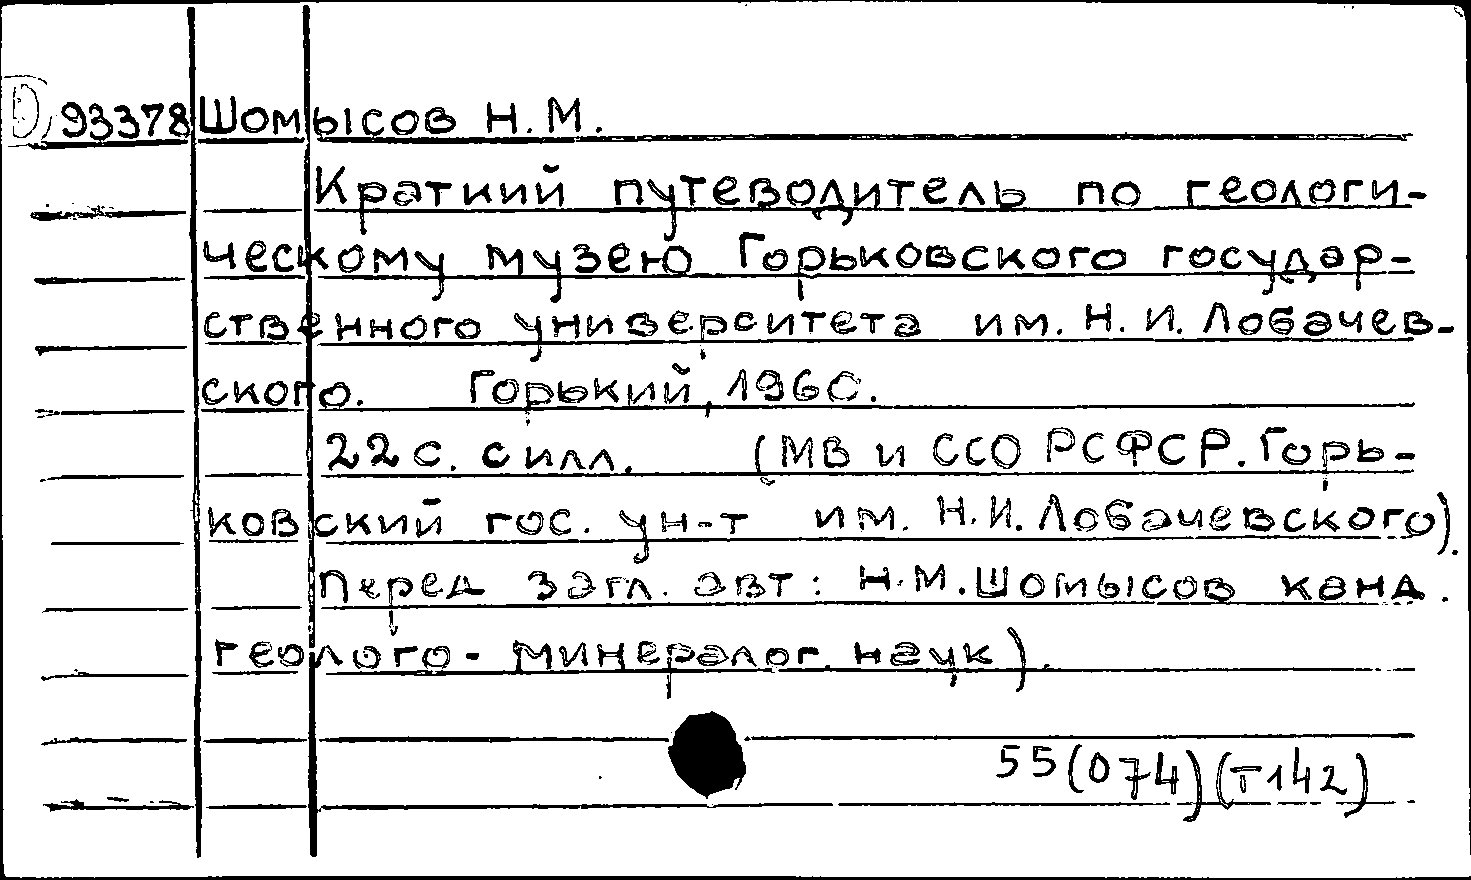 D 93378 Шомысов Н.М.
Краткий путеводитель по геологи-
ческому музею Горьковского государ-
ственного университета им. Н.И. Лобачев-
ского. Горький, 1960.
22 с. с илл. (МВ и ССО РСФСР. Горь-
ковский гос. ун-т им. Н.И. Лобачевского).
Перед загл. авт: Н.М. Шомысов канд.
геолого-минералог. наук).
55(074)(Т142)